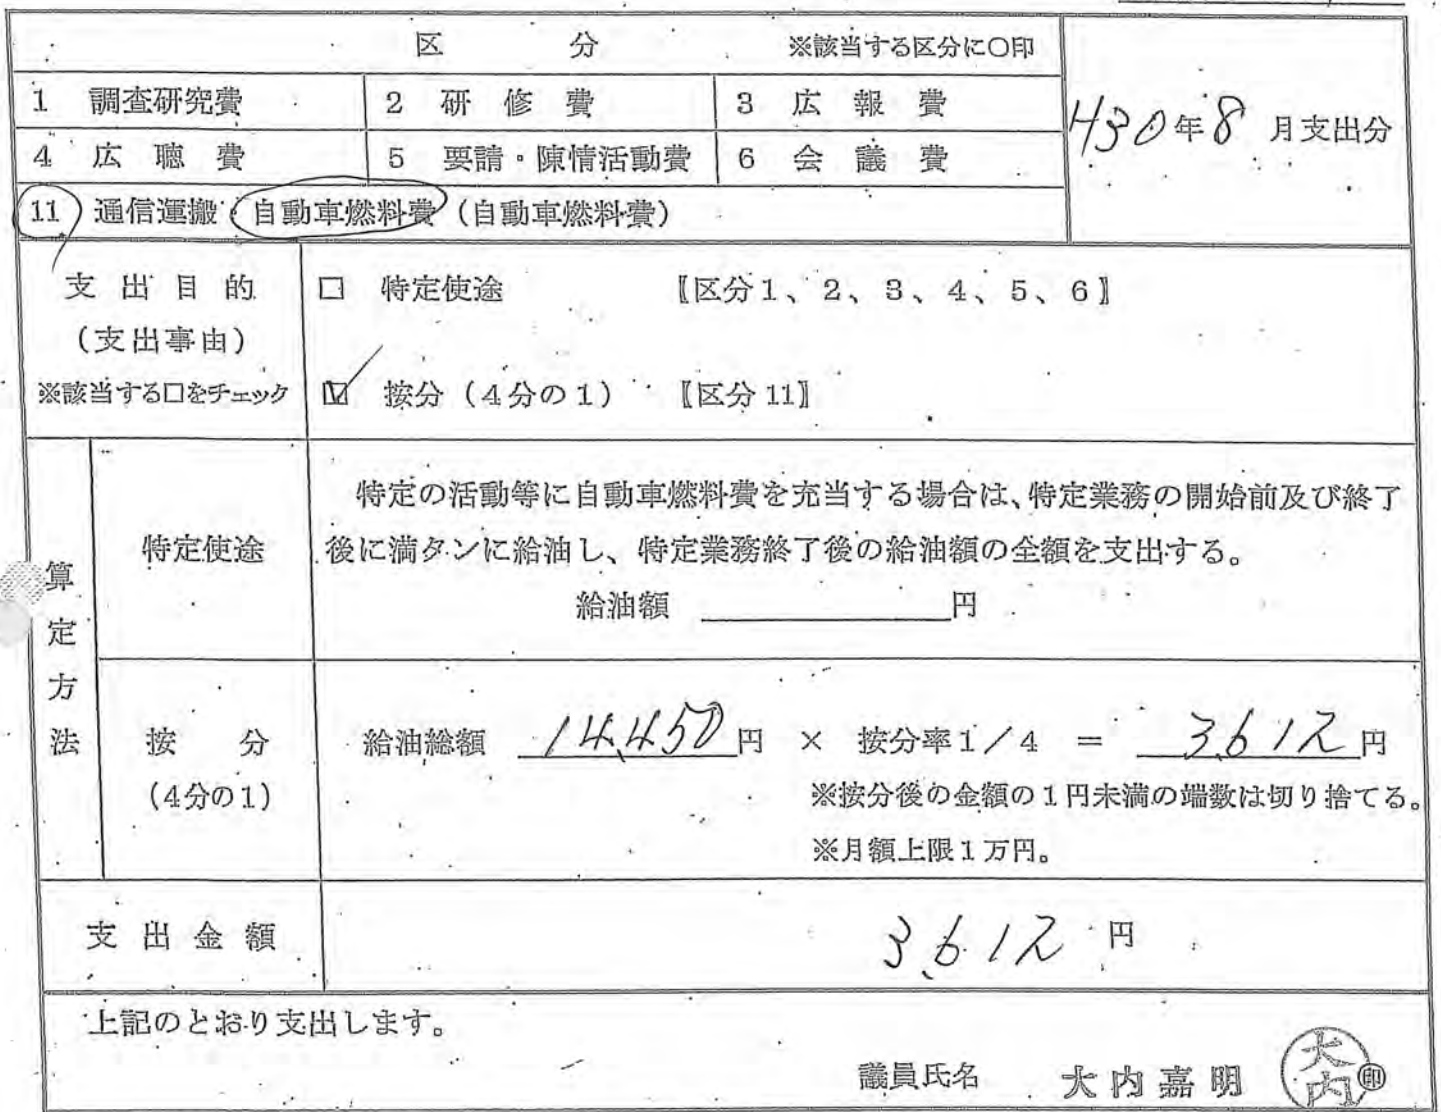 区 分 ※該当する区分に○印
1 調査研究費 2 研 修 費 3 広 報 費
H30年8 月支出分
4 広 聴 費 5 要請・陳情活動費 6 会 議 費
11 通信運搬・自動車燃料費(自動車燃料費)
支 出 目 的 □ 特定使途 〖区分1、2、3、4、5、6〗
(支出事由)
※該当する□をチェック ☑ 按分(4分の1) 〖区分11〗
算定方法
特定使途
特定の活動等に自動車燃料費を充当する場合は、特定業務の開始前及び終了
後に満タンに給油し、特定業務終了後の給油額の全額を支出する。
給油額 円
按 分 給油総額 14,450円 × 按分率1/4 = 3,612円
(4分の1) ※按分後の金額の1円未満の端数は切り捨てる。
※月額上限1万円。
支 出 金 額 3,612 円
上記のとおり支出します。
議員氏名 大 内 嘉 明 大内 ㊞